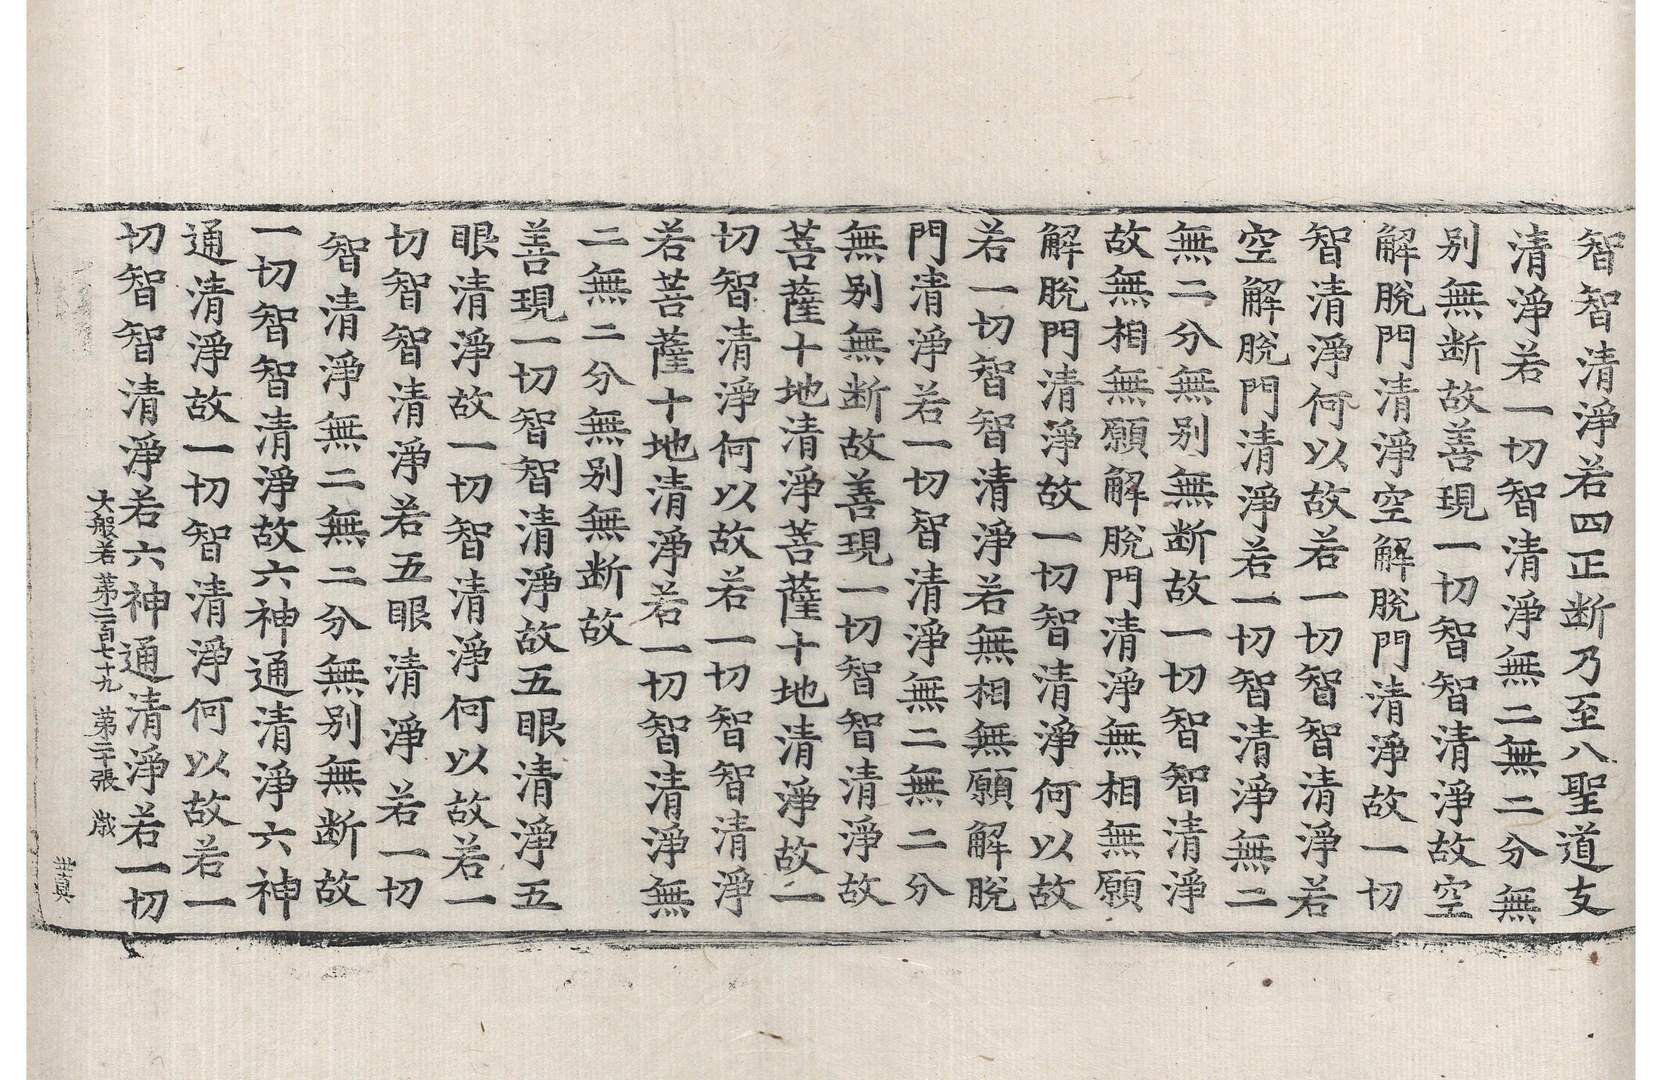 智智清淨若四正断乃至八聖道支
清淨若一切智清淨無二無二分無
别無断故善現一切智智清淨故空
解脫門清淨空解脫門清淨故一切
智清淨何以故若一切智智清淨若
空解脫門清淨若一切智清淨無二
無二分無别無断故一切智智清淨
故無相無願解脫門清淨無相無願
解脫門清淨故一切智清淨何以故
若一切智智清淨若無相無願解脫
門清淨若一切智清淨無二無二分
無别無断故善現一切智智清淨故
菩薩十地清淨菩薩十地清淨故一
切智清淨何以故若一切智智清淨
若菩薩十地清淨若一切智清淨無
二無二分無别無断故
善現一切智智清淨故五眼清淨五
眼清淨故一切智清淨何以故若一
切智智清淨若五眼清淨若一切
智清淨無二無二分無别無断故
一切智智清淨故六神通清淨六神
通清淨故一切智清淨何以故若一
切智智清淨若六神通清淨若一切
大般若 苐二百七十九 苐二十張